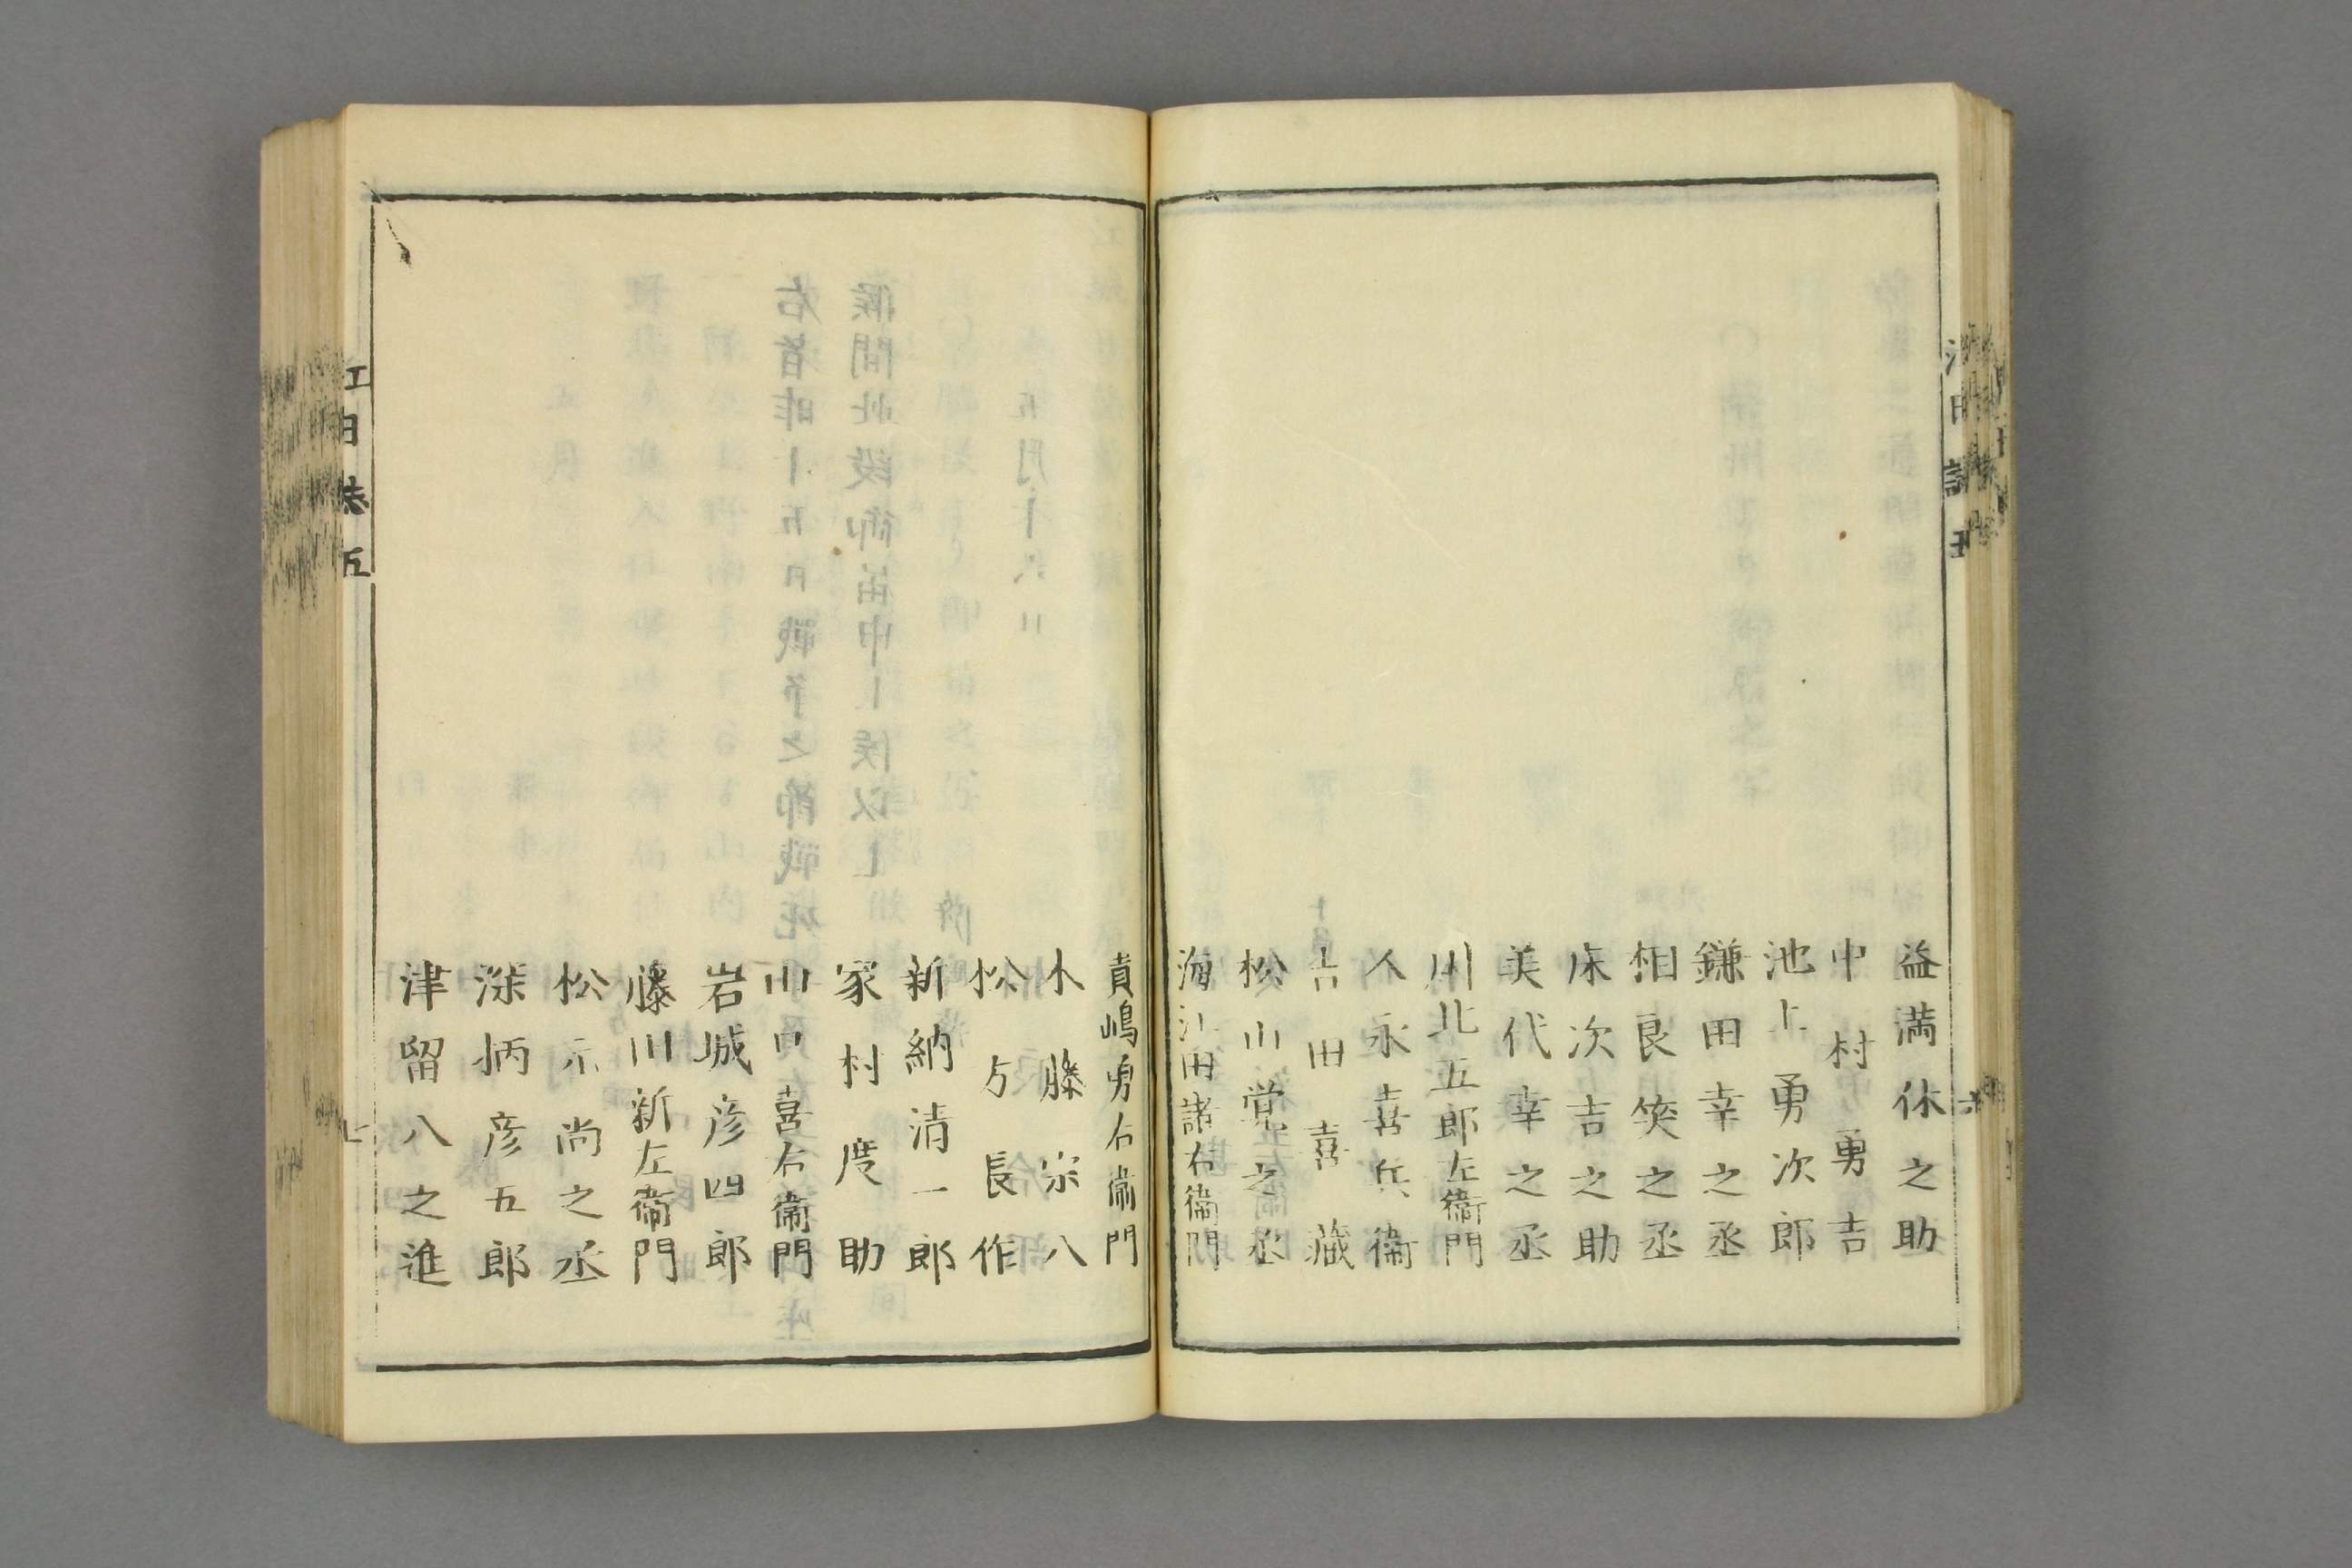 益満休之助
中村勇吉
池上勇次郎
鎌田幸之丞
相良筴之丞
床次吉之助
美代幸之丞
川北五郎左衛門
永喜兵衞
吉田喜藏
松山覚之丞
海江田諸右衞門
貴嶋勇右衞門
木藤宗八
松方長作
新納清一郎
家村度助
山口喜右衞門
岩城彦四郎
藤川新左衞門
松下尚之丞
深栖彦五郎
津留八之進
江日誌五
七